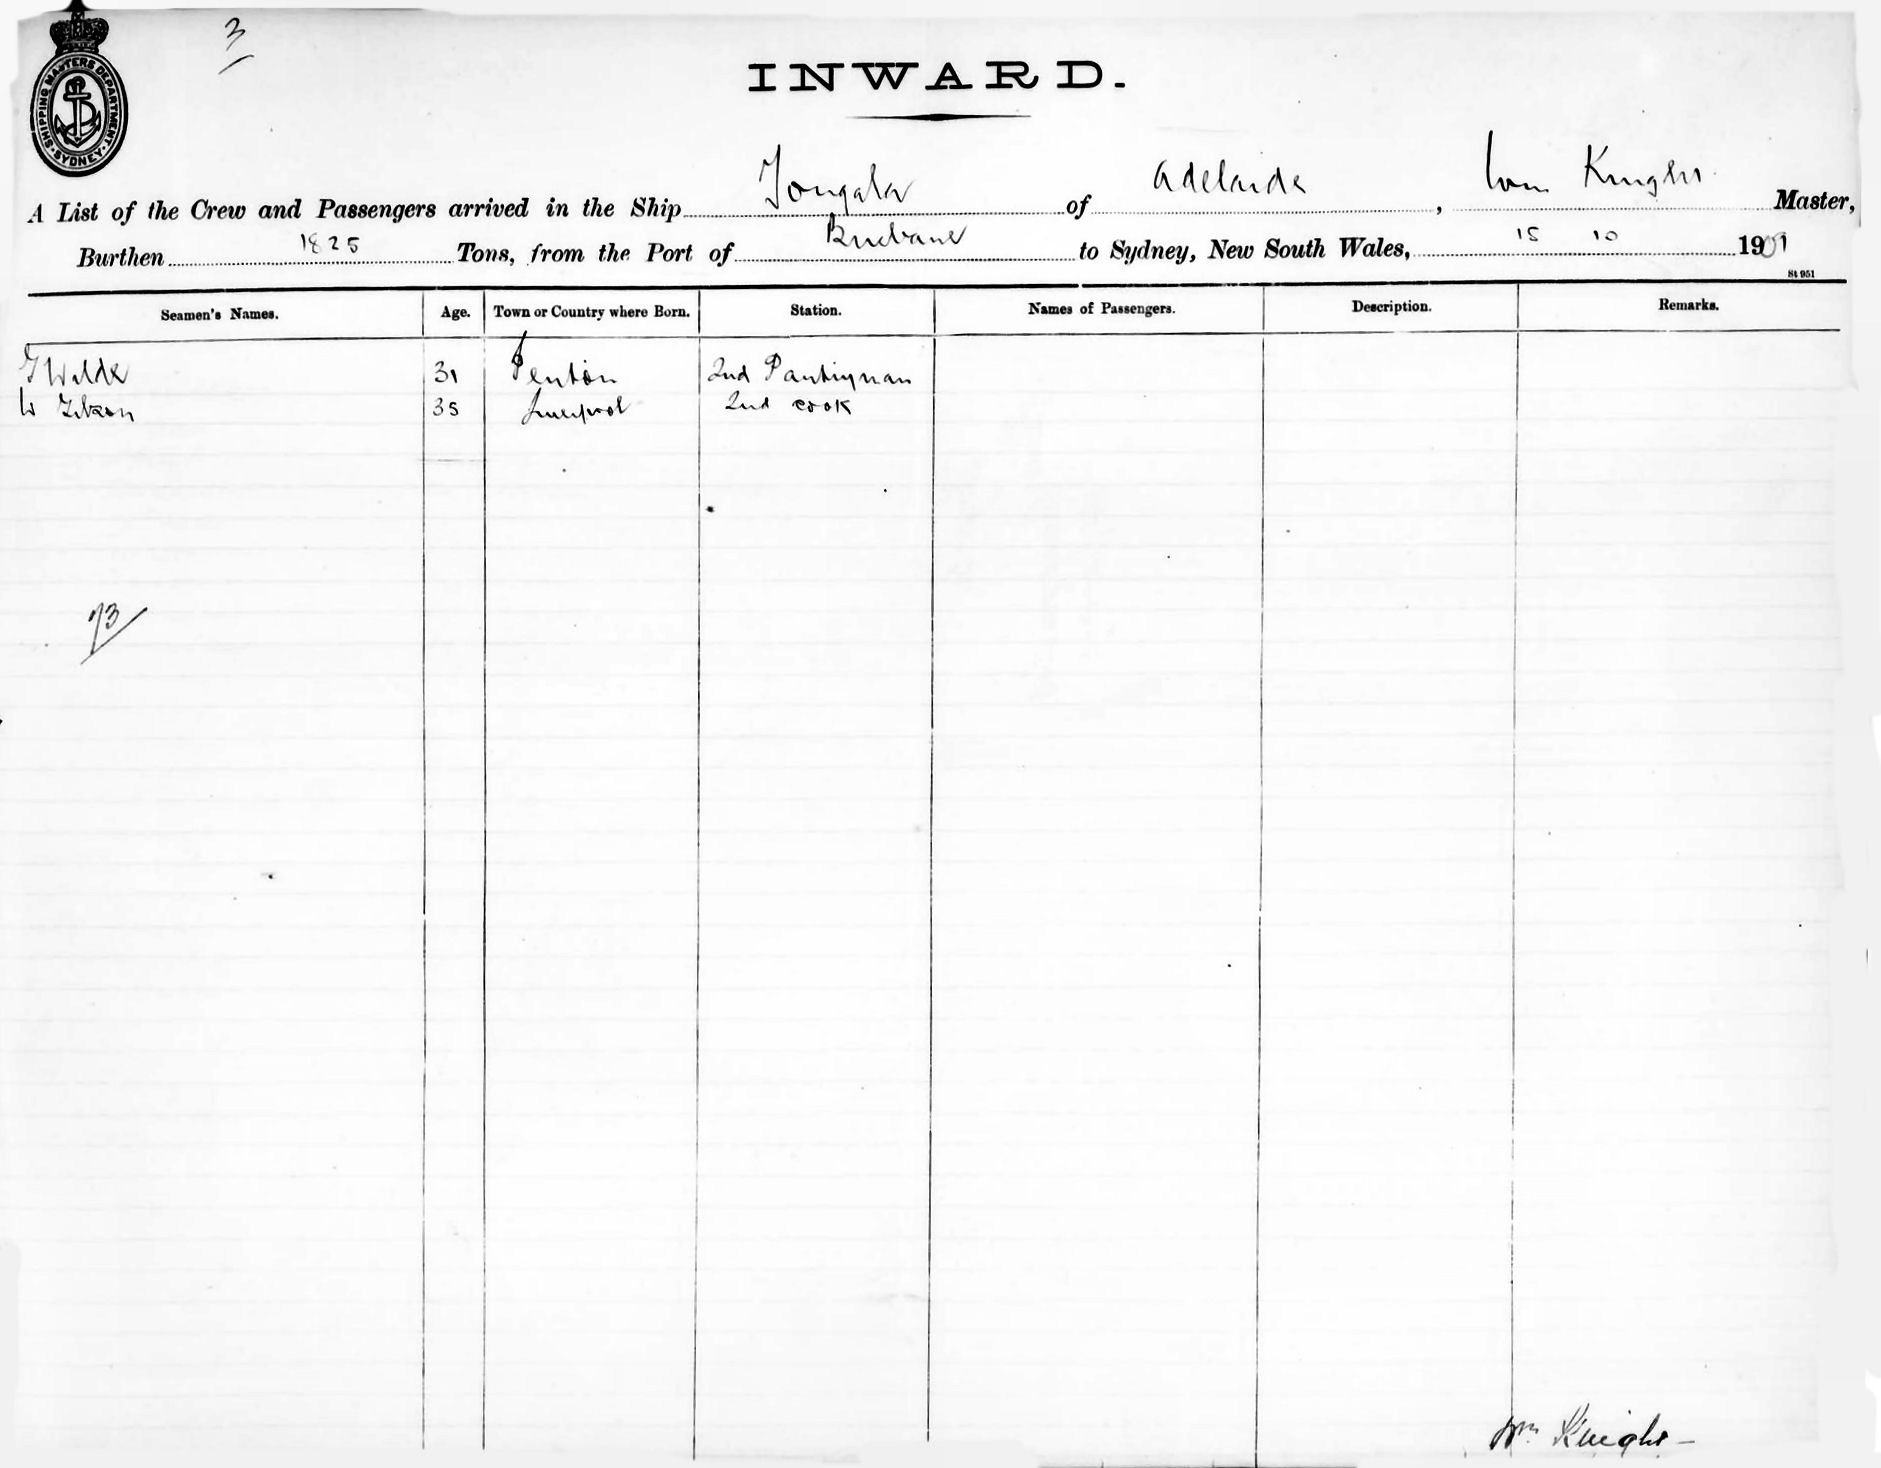 SHIPPING MASTERS DEPARTMENT · SYDNEY ·
3
INWARD.
A List of the Crew and Passengers arrived in the Ship Yongala of Adelaide, Wm Knight Master,
Burthen 1825 Tons, from the Port of Brisbane to Sydney, New South Wales, 15 10 1909
St 951
Seamen's Names. Age. Town or Country where Born. Station. Names of Passengers. Description. Remarks.
Wilde 31 2nd Pantryman
W 35 Liverpool 2nd cook
73
Wm Knight